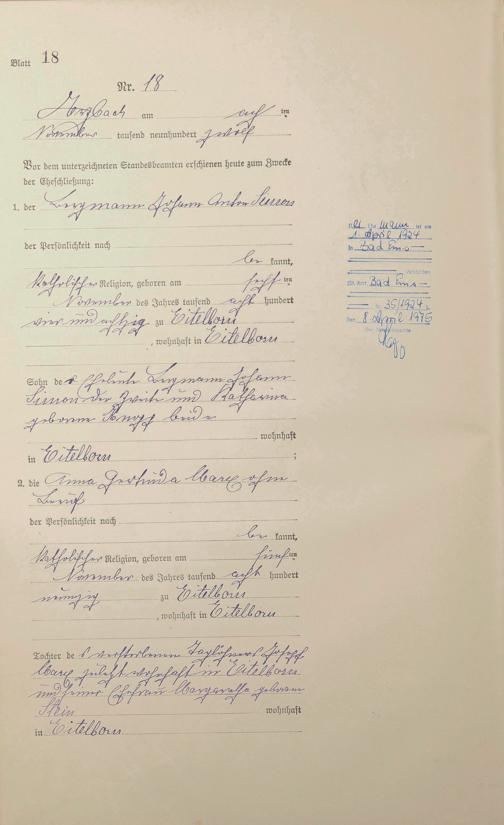 Blatt 18
Nr. 18
Arzbach am acht ten
November tausend neunhundert zwölf
Vor dem unterzeichneten Standesbeamten erschienen heute zum Zwecke
der Eheschließung:
1. der Bergmann Johann Anton Simon
der Persönlichkeit nach
be kannt,
katholischer Religion, geboren am sechs ten
November des Jahres tausend acht hundert
vier und achtzig zu Eitelborn
, wohnhaft in Eitelborn
Sohn de r Eheleute Bergmann Johann
Simon der Zweite und Katharina
geborene Knopp beide
wohnhaft
in Eitelborn ;
2. die Anna Gertruda Marx ohne
Beruf
der Persönlichkeit nach
be kannt,
katholischer Religion, geboren am fünf ten
November des Jahres tausend acht hundert
neunzig zu Eitelborn
, wohnhaft in Eitelborn
Tochter de s verstorbenen Taglöhners Joseph
Marx zuletzt wohnhaft in Eitelborn
und seiner Ehefrau Margaretha geborene
Stein wohnhaft
in Eitelborn
Mann ist am
1. April 1924
in Bad Ems
Verstorben
Bad Ems
35/1924
8. April 1975